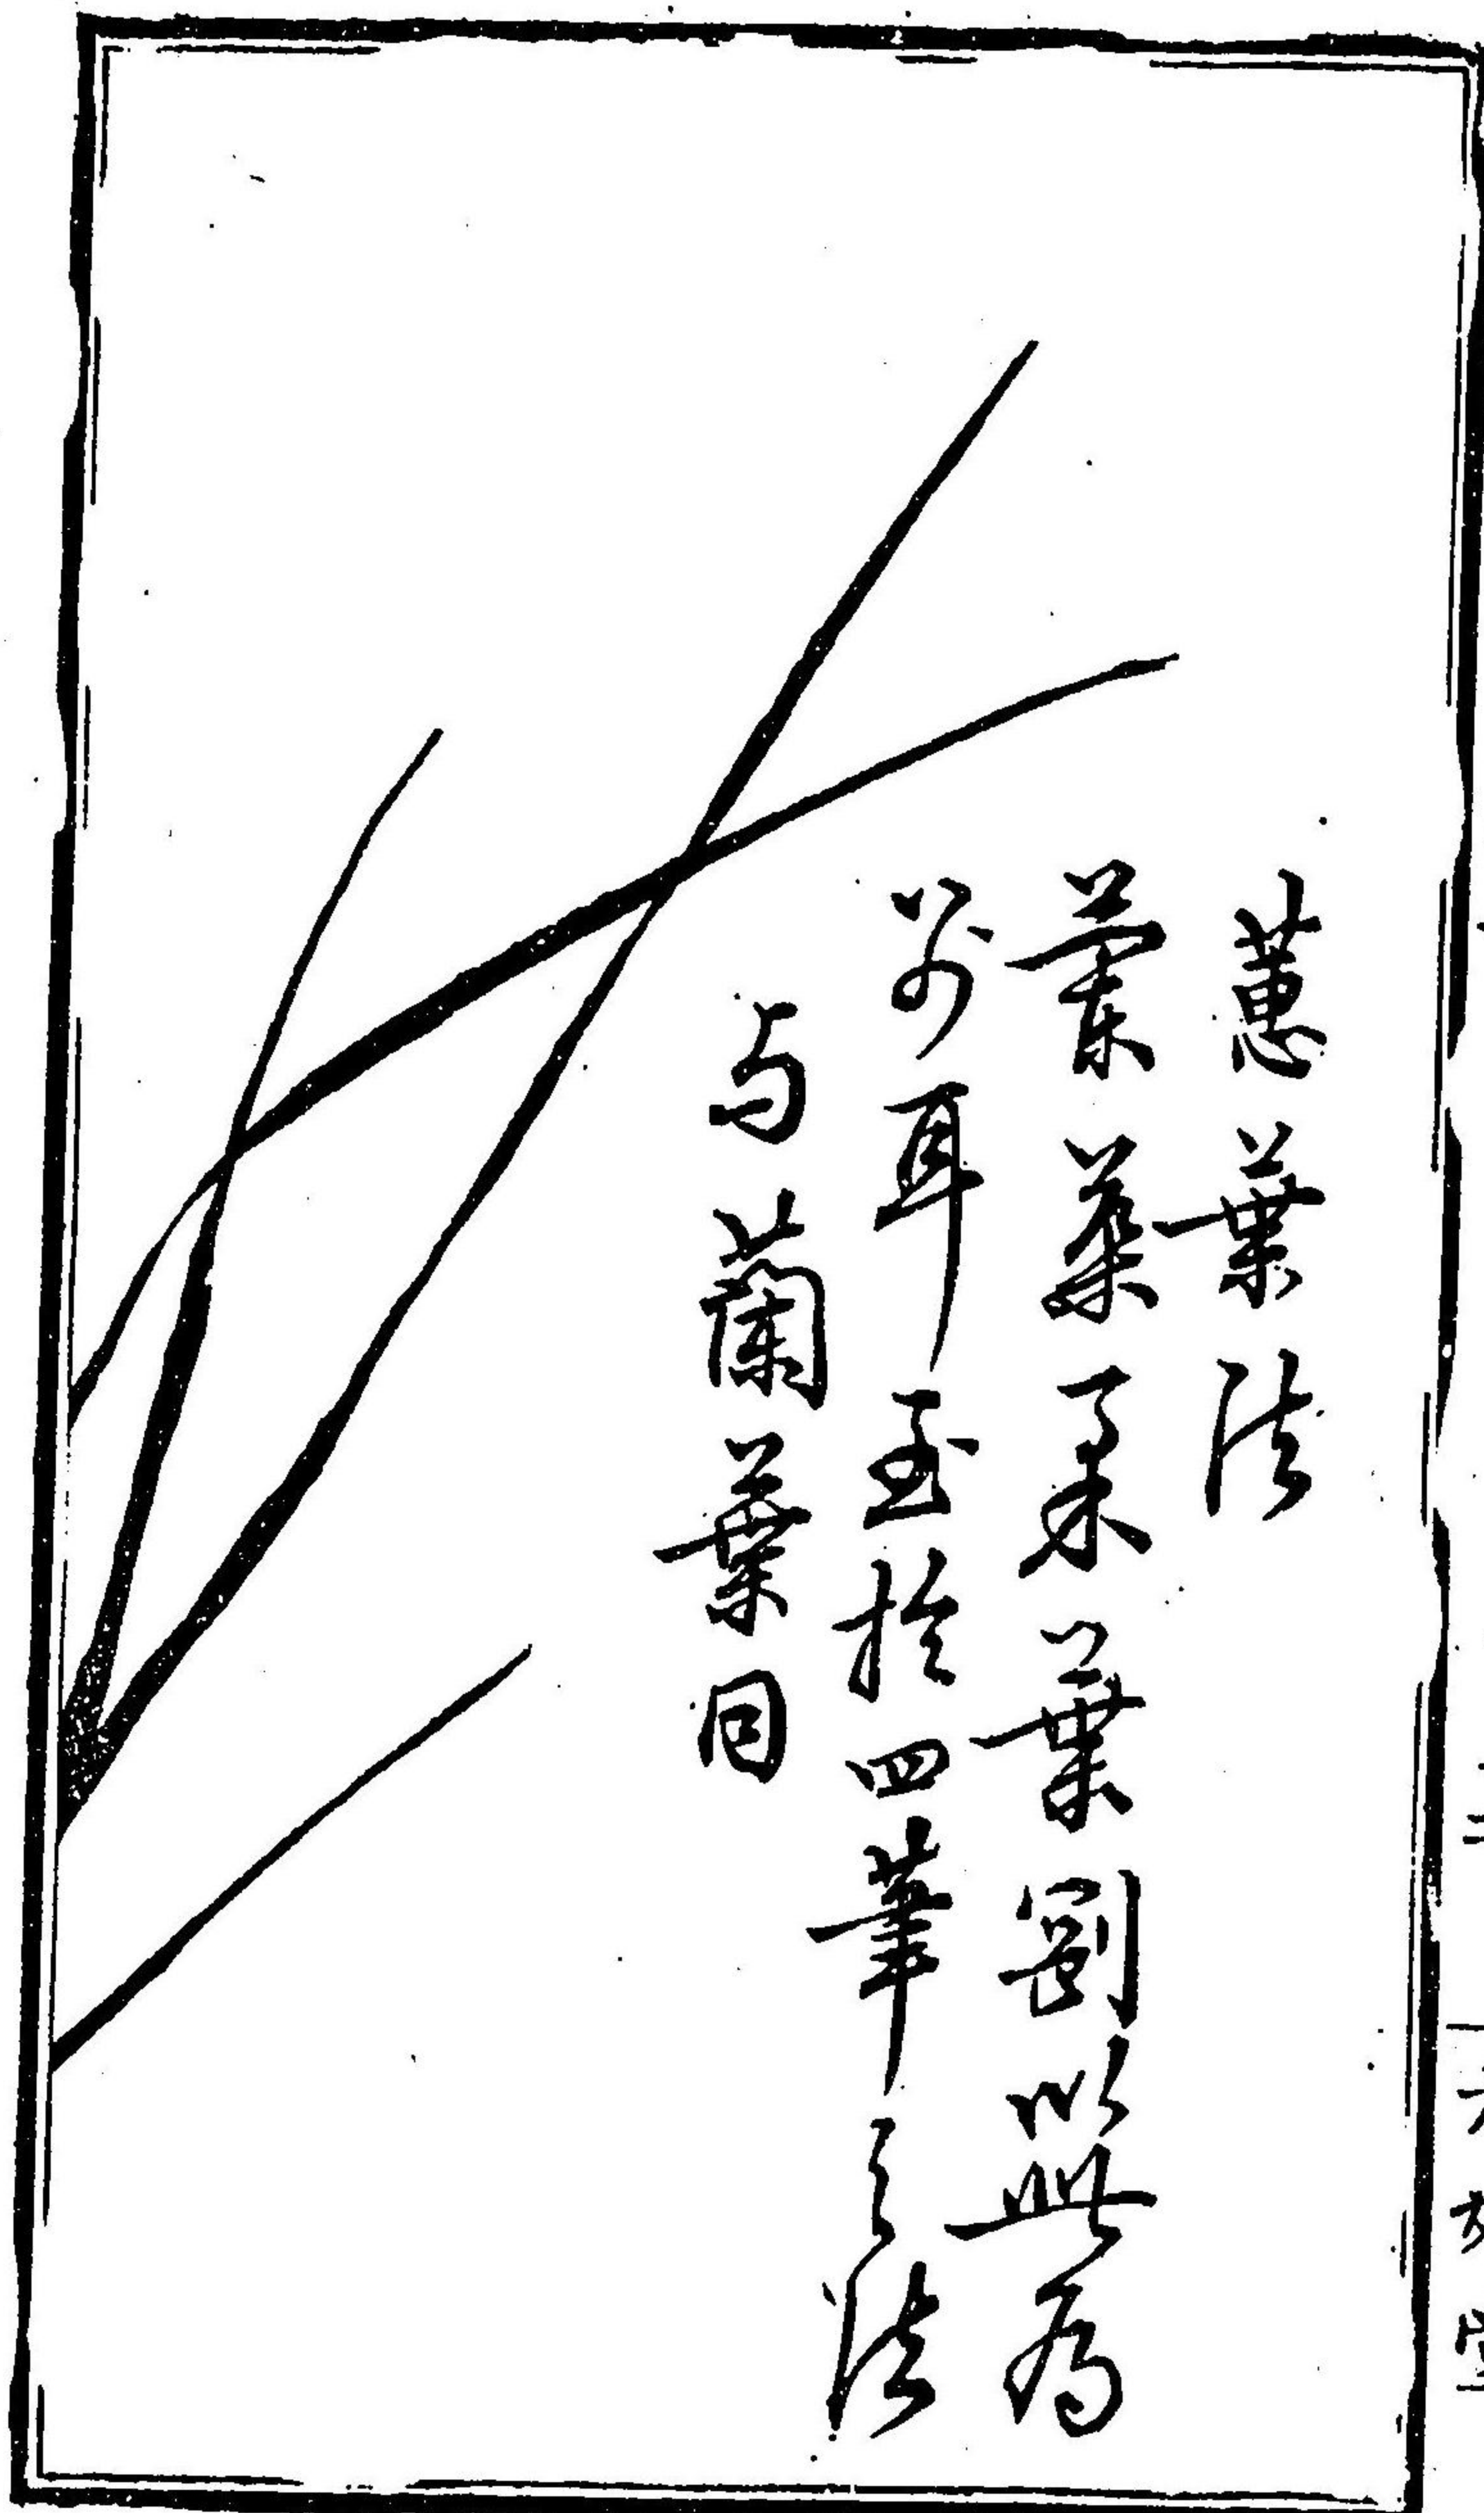 蕙葉法
蘭葉柔葉剛以此為
別耳至於四筆之法
与蘭葉同